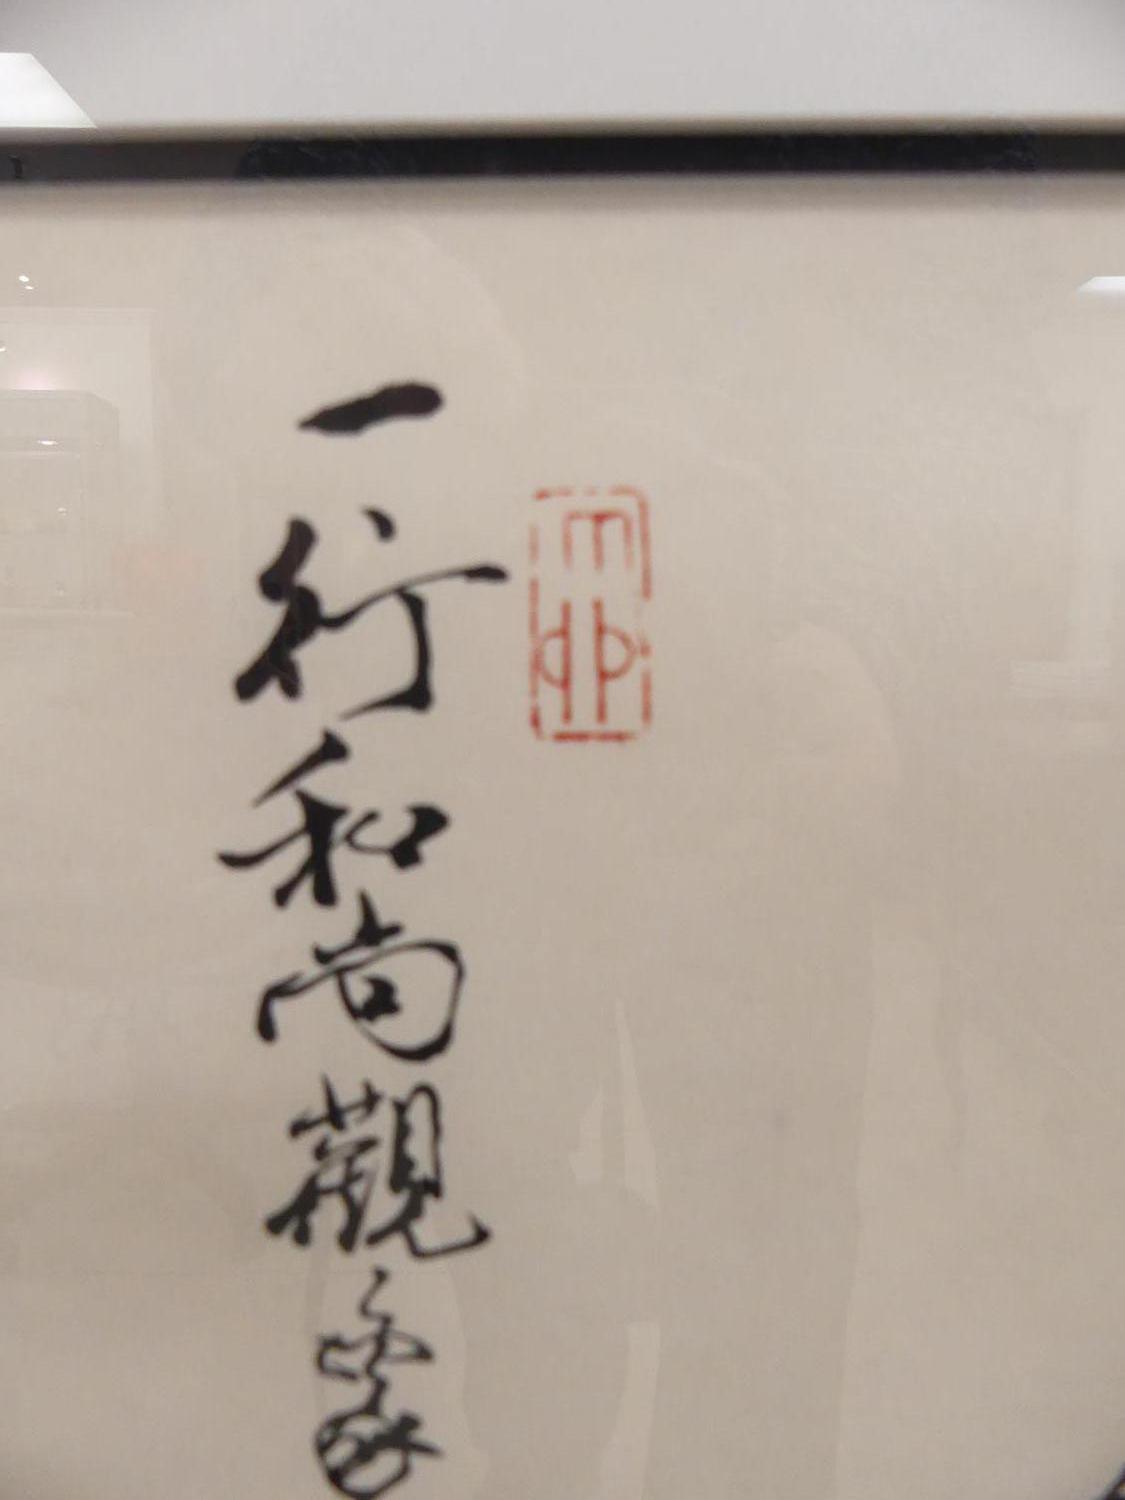 一行和尚觀象